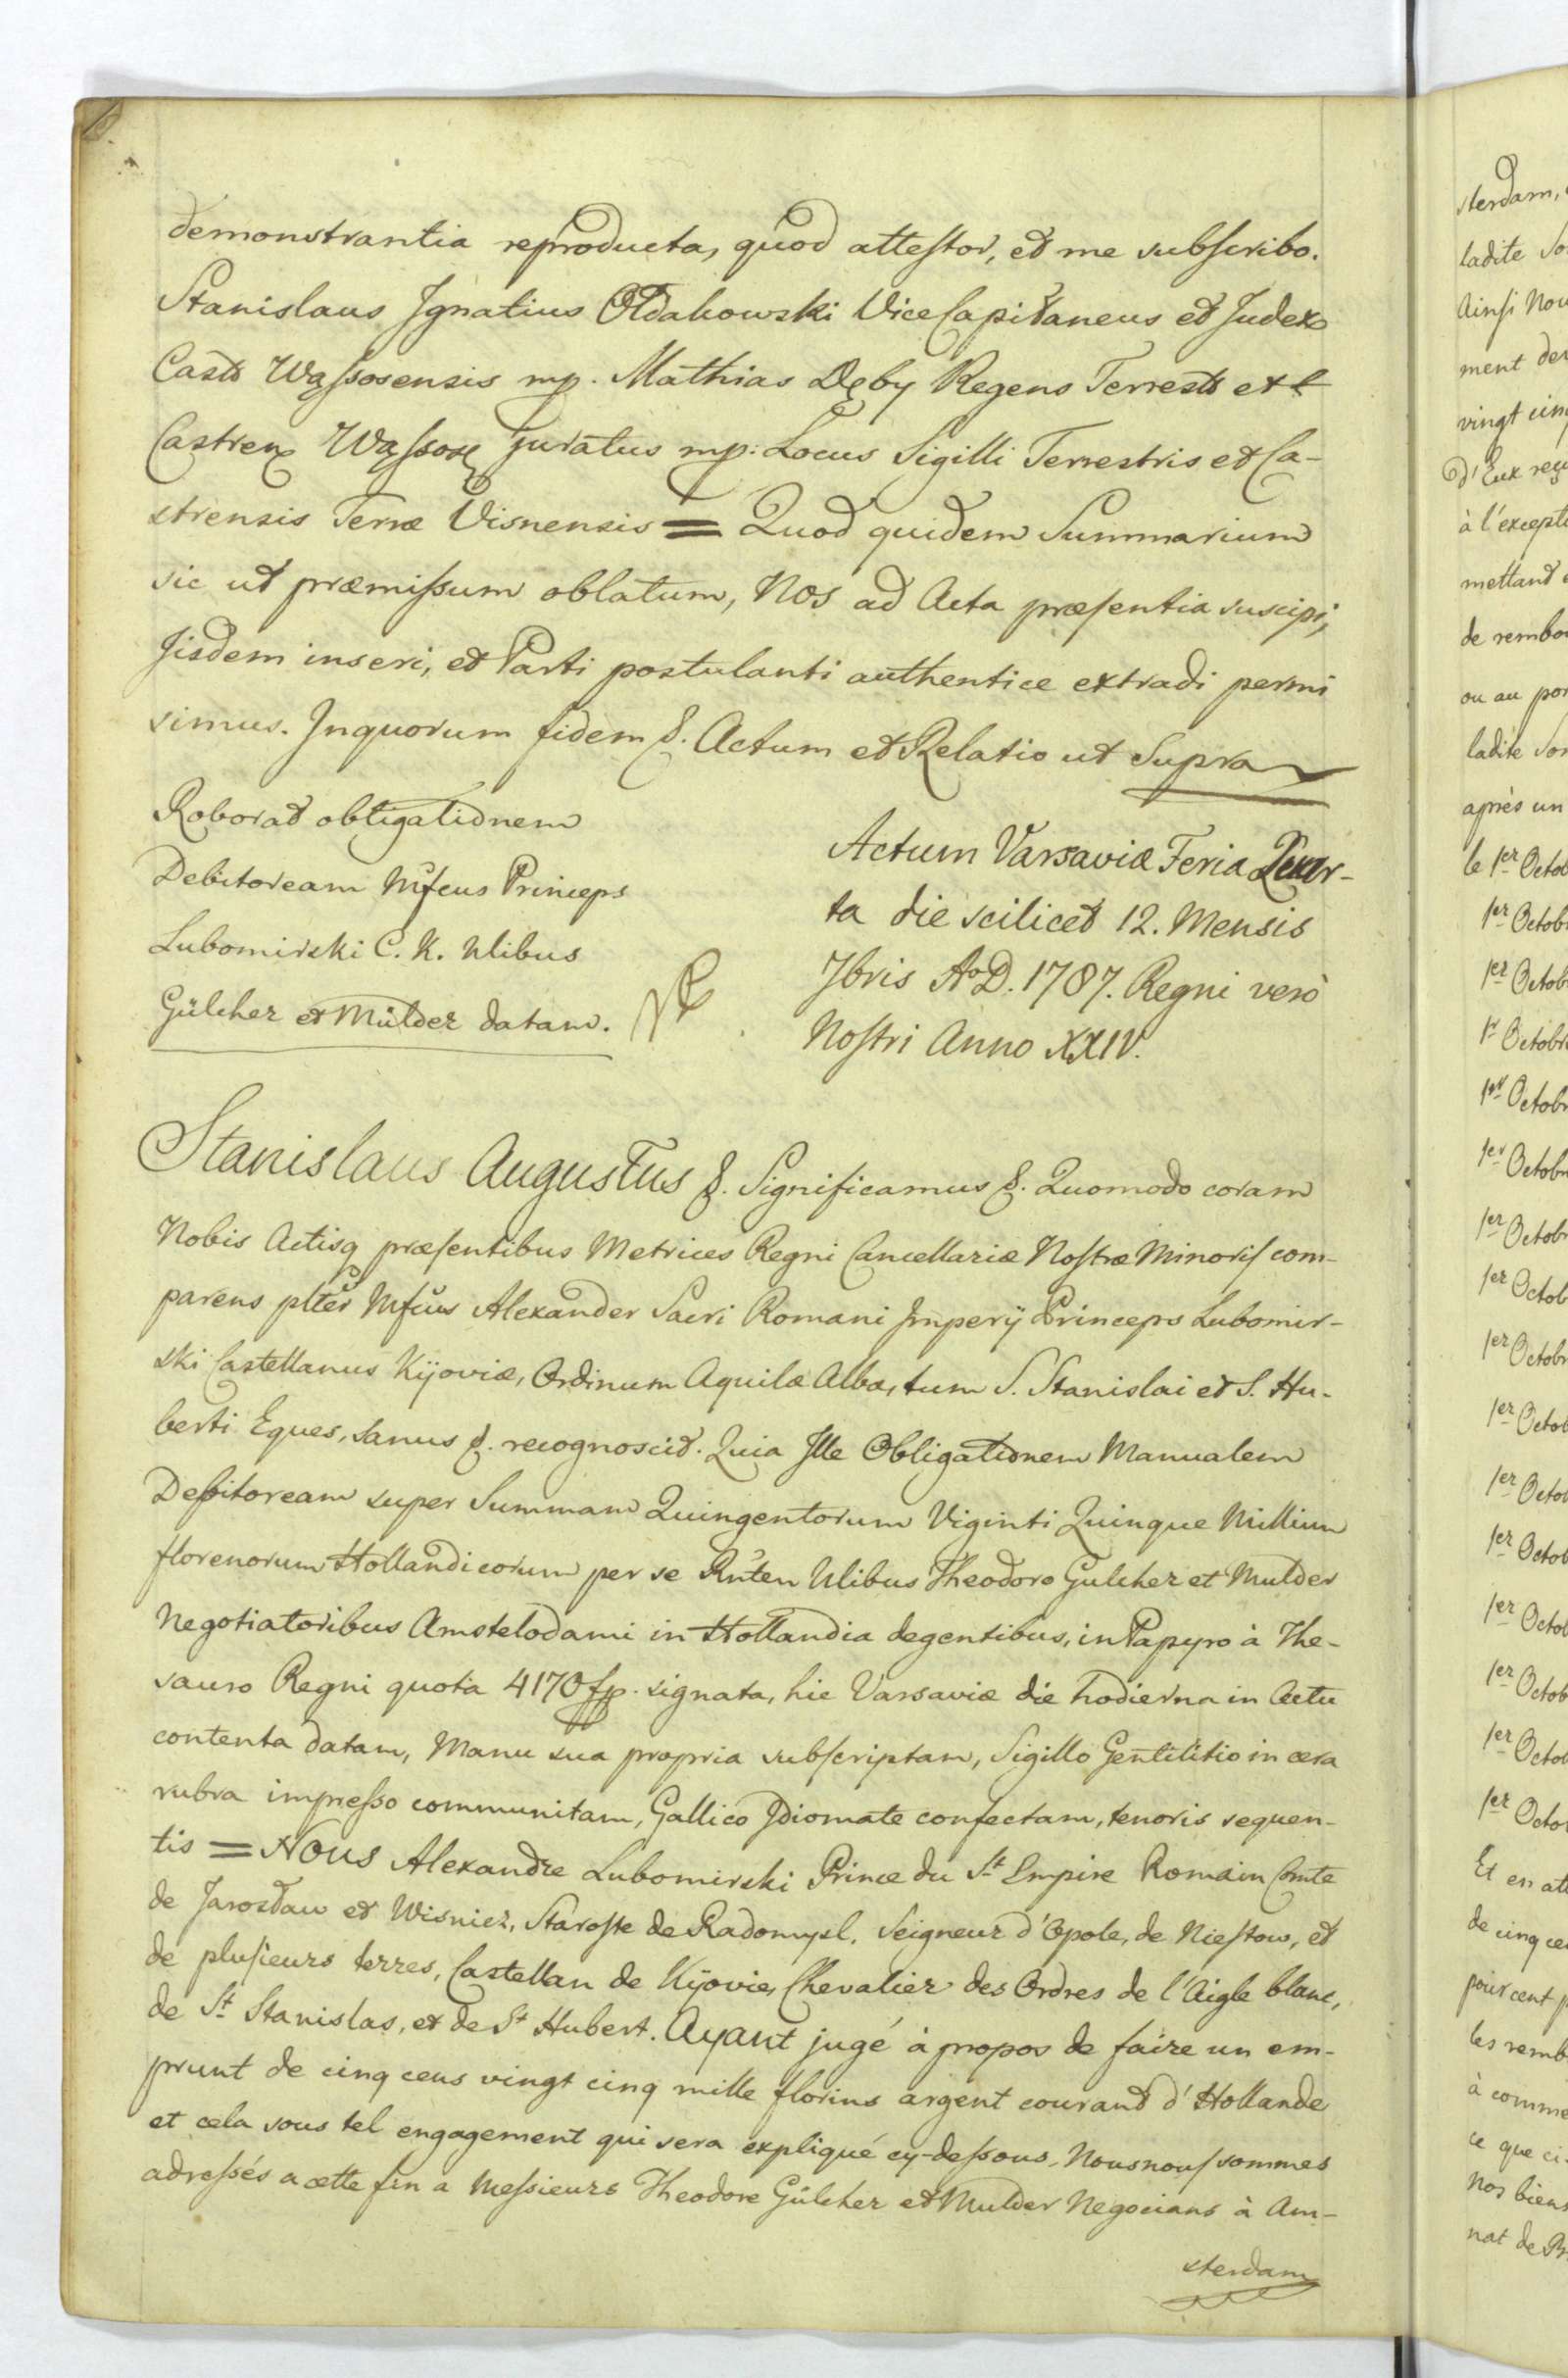 demonstrantia reproducta, quod attestor, et me subscribo.
Stanislaus Ignatius Ołdakowski ViceCapitaneus et Judex
Casts Wąssosensis mp. Mathias Dęby Regens Terrests et
Castren Wąssos Juratus mp: Locus Sigilli Terrestris et Ca-
strensis Terræ Visnensis = Quod quidem Summarium
sic ut præmissum oblatum, Nos ad Acta præsentia suscipi,
Jisdem inseri, et Parti postulanti authentice extradi permi
simus. Inquorum fidem &. Actum et Relatio ut Supra
Roborat obligationem
Debitoream Mfcus Princeps
Lubomirski C. K. Nlibus
Gülcher et Mülder datam.
Actum Varsaviæ Feria Quar-
ta die scilicet 12. Mensis
7bris AoD. 1787. Regni verò
Nostri Anno XXIV.
Stanislaus Augustus &. Significamus &. Quomodo coram
Nobis Actisq præsentibus Metrices Regni Cancellariæ Nostræ Minoris com-
parens plter Mfcus Alexander Sacri Romani Imperÿ Princeps Lubomir-
ski Castellanus Kÿoviæ, Ordinum Aquilæ Albæ, tum S. Stanislai et S. Hu-
berti Eques, sanus &. recognoscit. Quia Ille Obligationem Manualem
Debitoream super Summam Quingentorum Viginti Quinque Millium
florenorum Hollandicorum per se Rñten Nlibus Theodoro Gulcher et Mulder
Negotiatoribus Amstelodami in Hollandia degentibus, in Papyro à The-
sauro Regni quota 4170 fp. signata, hic Varsaviæ die hodierna in Actu
contenta datam, Manu sua propria subscriptam, Sigillo Gentilitio in cera
rubra impresso communitam, Gallico Idiomate confectam, tenoris sequen-
tis = Nous Alexandre Lubomirski Prince du St Empire Romain Comte
de Jarosław et Wisniez, Staroste de Radomysl, Seigneur d'Opole, de Niestow, et
de plusieurs terres, Castellan de Kÿovie, Chevalier des Ordres de l'Aigle blanc,
de St Stanislas, et de St Hubert. Ayant jugé à propos de faire un em-
prunt de cinq cens vingt cinq mille florins argent courant d'Hollande
et cela sous tel engagement qui sera expliqué cy-dessous, Nous nous sommes
adressés a cette fin a Messieurs Theodore Gülcher et Mulder Negocians à Am-
sterdam
sterdam,
ladite
Ainsi Nou
ment
vingt cinq
d'Eux reçu
à l'except
mettant
de rembo
ou au por
ladite
après un
le 1er Octob
1er Octob
1er Octob
1r Octobr
1er Octobr
1er Octobr
1er Octobr
1er Octob
1er Octobr
1er Octob
1er Octob
1er Octob
1er Octob
1er Octob
1er Octob
1er Octo
Et en at
de cinq ce
pour cent p
les remb
à comme
ce que ci-
Nos biens
nat de